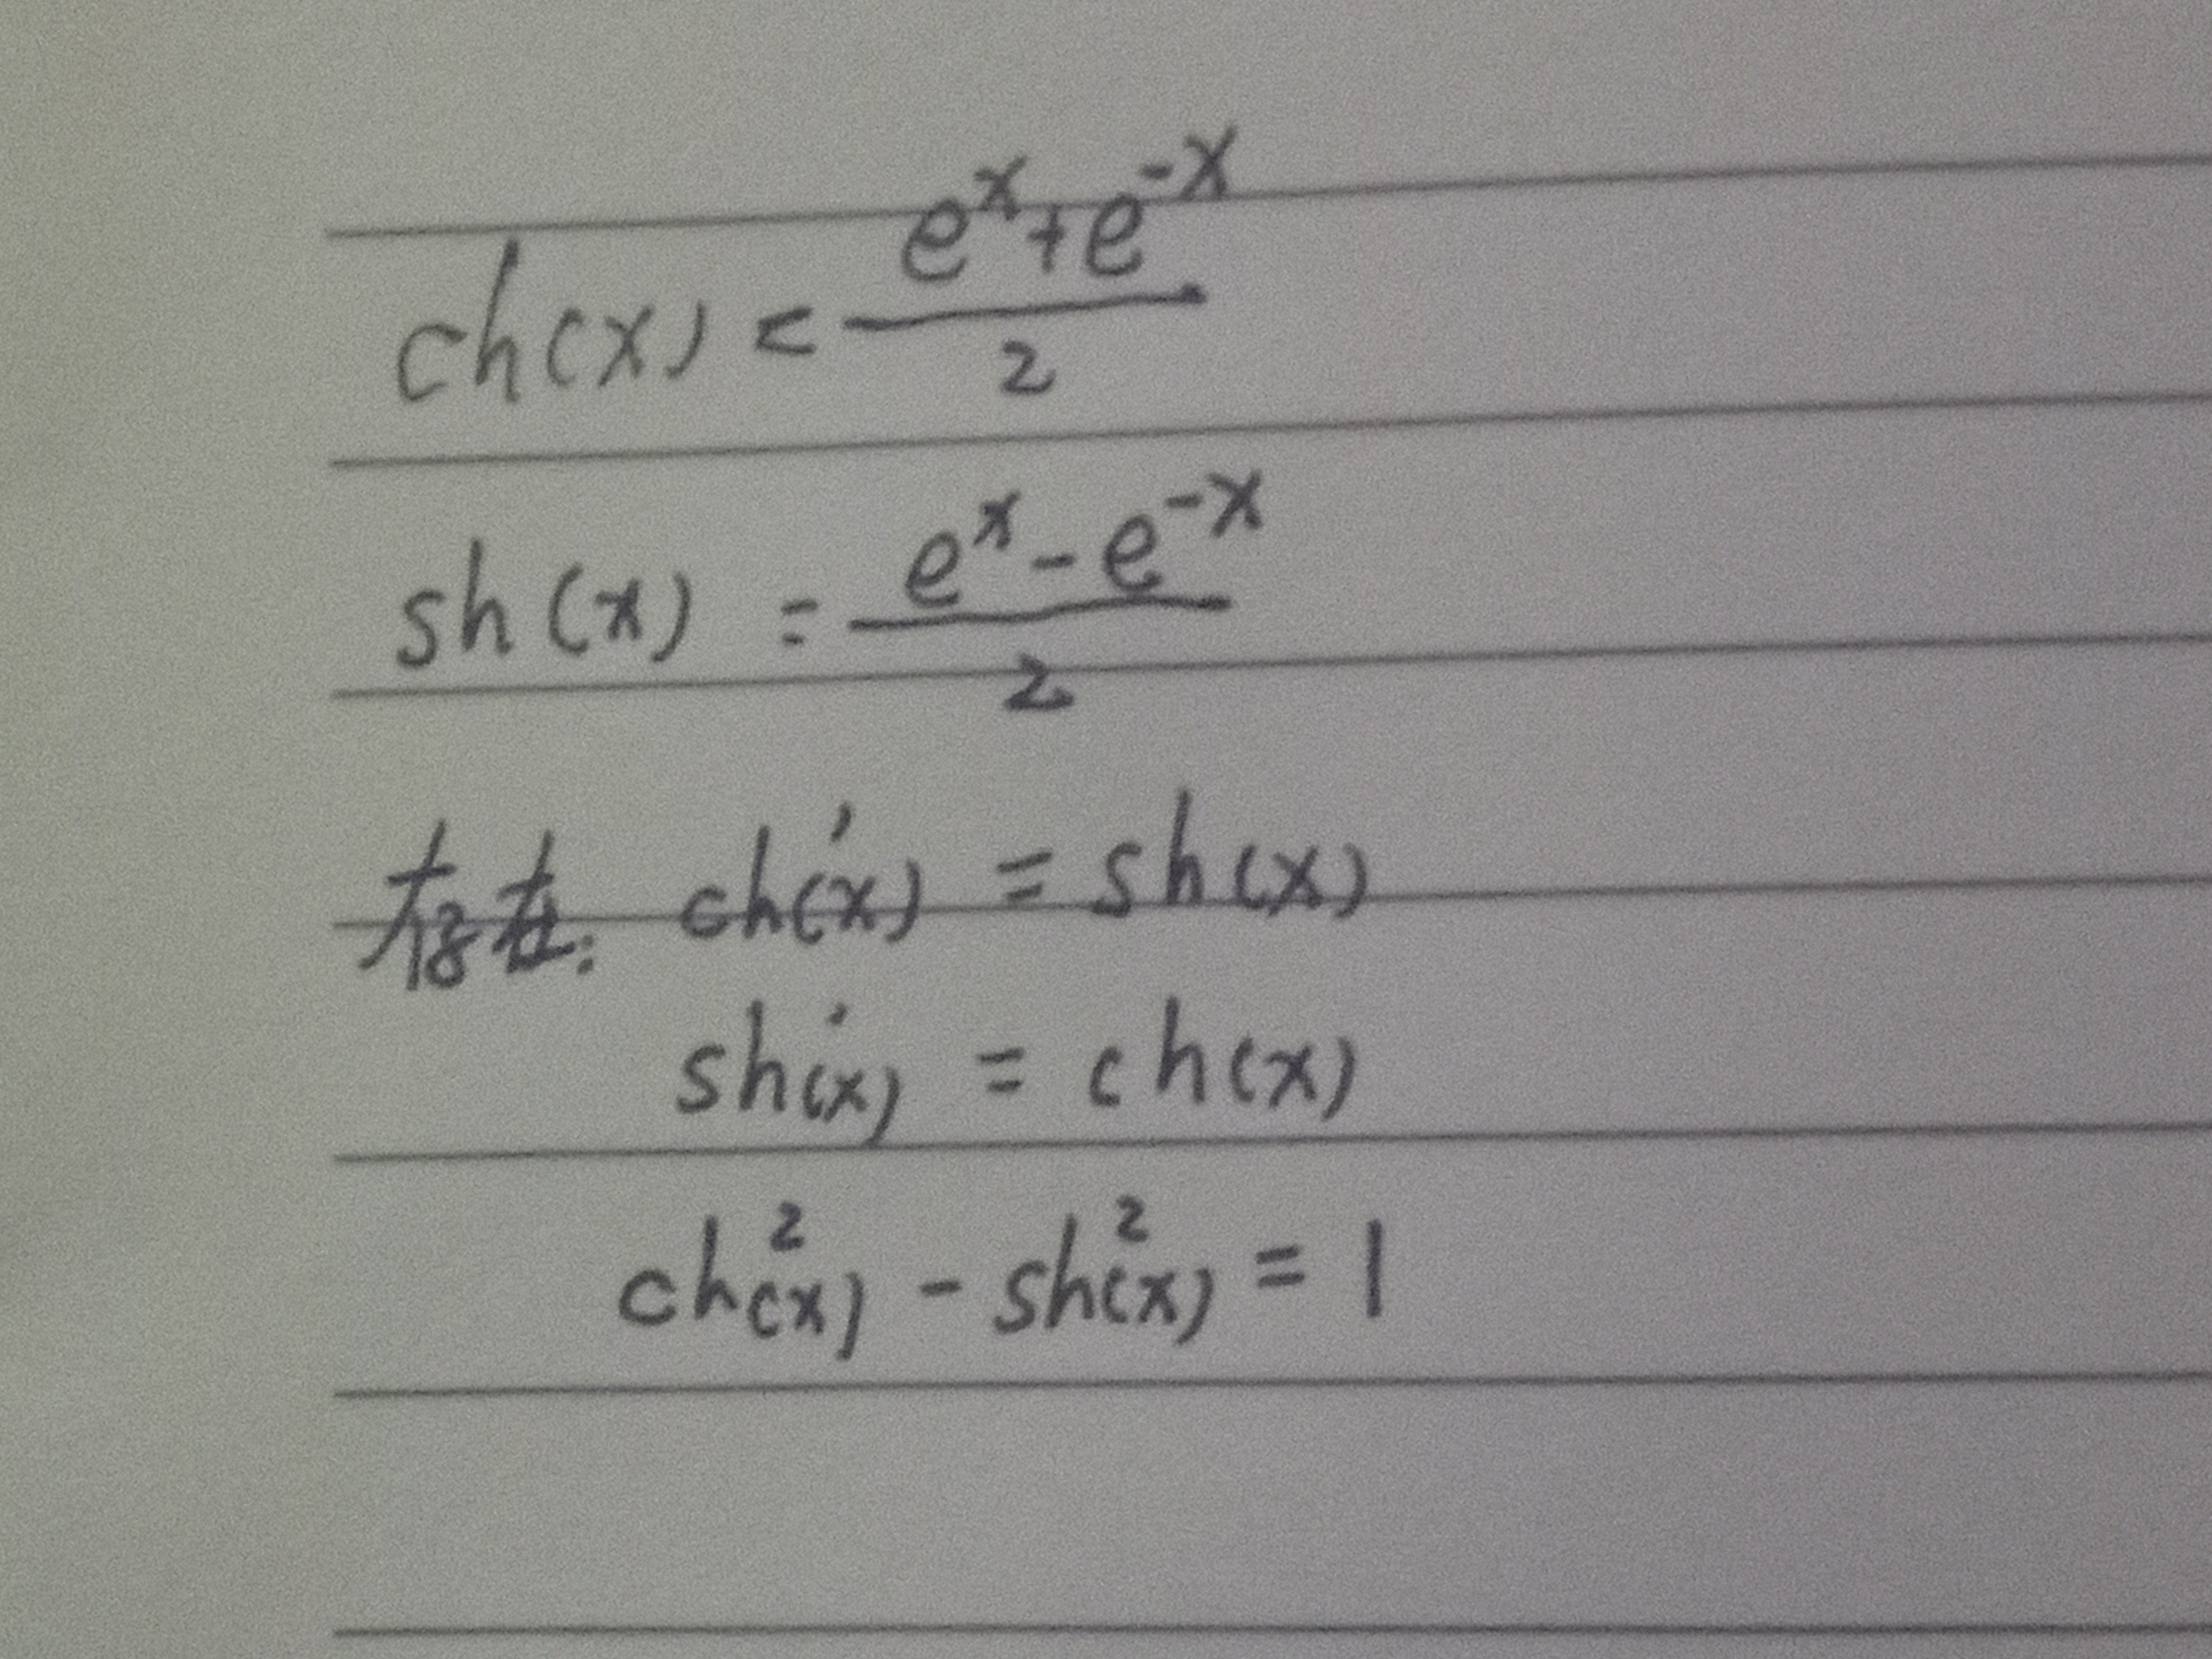 ch(x) = \frac{e^x+e^{-x}}{2}
sh(x) = \frac{e^x-e^{-x}}{2}
存在: ch'(x) = sh(x)
sh'(x) = ch(x)
ch^2(x) - sh^2(x) = 1